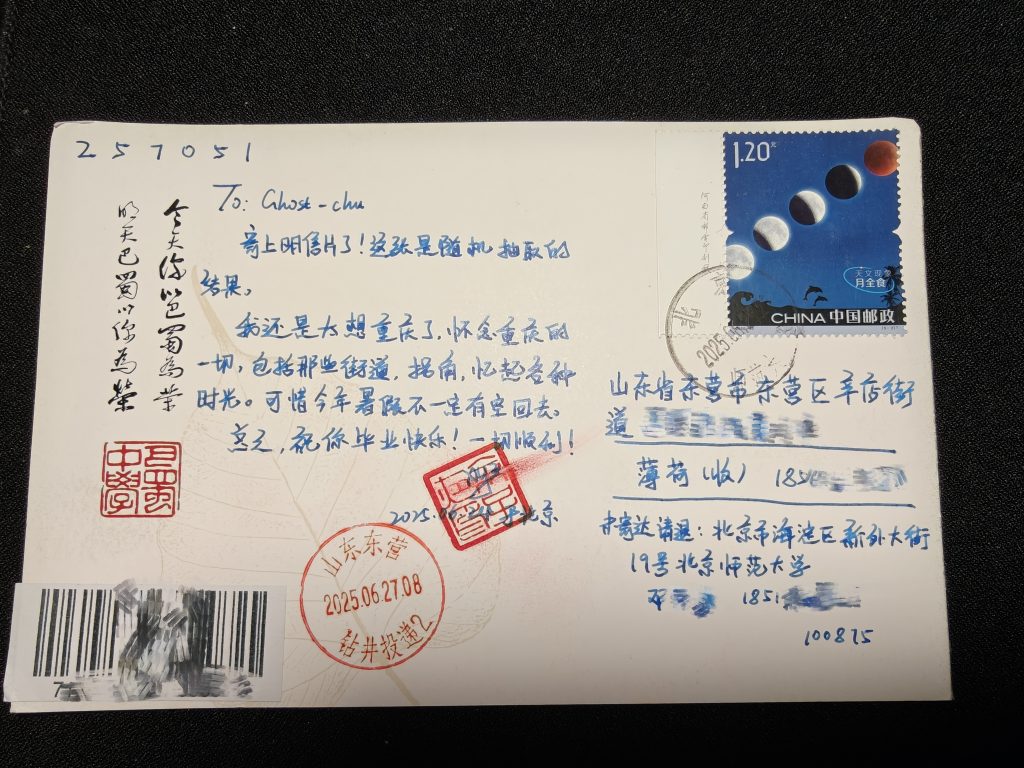 257051
To: Ghost-chu
寄上明信片了！这张是随机抽取的
结果。
我还是太想重庆了，怀念重庆的
一切，包括那些街道，拐角，忆起各种
时光。可惜今年暑假不一定有空回去。
总之，祝你毕业快乐！一切顺利！
2025.06.24 于北京
今天你以巴蜀为荣
明天巴蜀以你为荣
巴蜀
中學
1.20元
天文现象
月全食
CHINA 中国邮政
北京
2025.06
山东省东营市东营区辛店街
道
薄荷（收） 185
如寄达请退：北京市海淀区新外大街
19号北京师范大学
1851
100875
山东东营
2025.06.27.08
钻井投递2
7